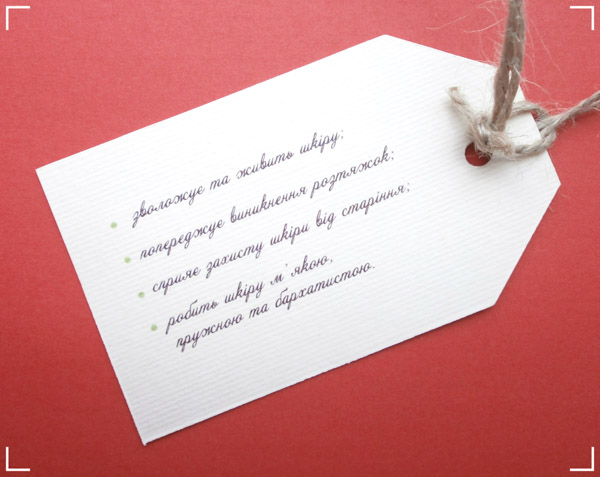 зволожує та живить шкіру;
попереджує виникнення розтяжок;
сприяє захисту шкіри від старіння;
робить шкіру м'якою,
пружною та бархатистою.